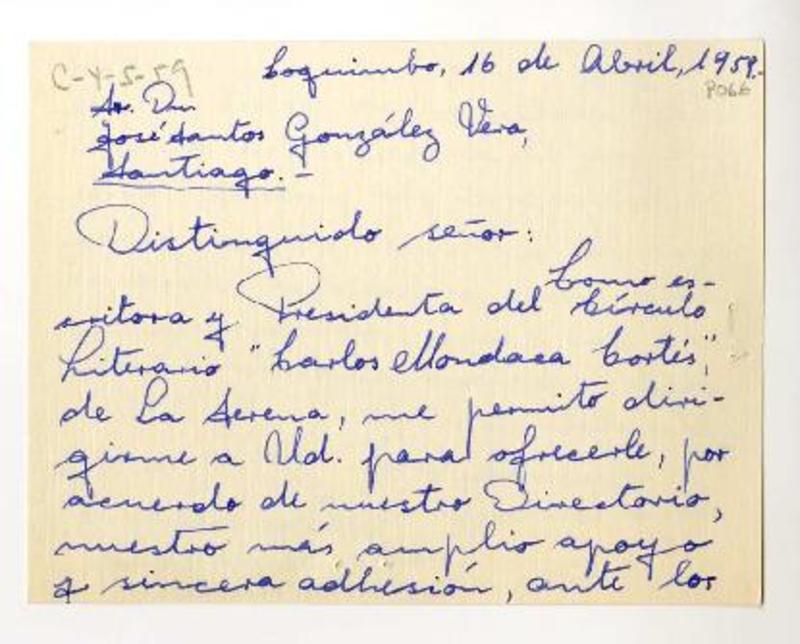 C-4-5-59
Coquimbo, 16 de Abril, 1959.-
8066
Sr. Don
José Santos González Vera,
Santiago.-
Distinguido señor:
Como es-
critora y Presidenta del Círculo
Literario "Carlos Mondaca Cortés",
de La Serena, me permito diri-
girme a Ud. para ofrecerle, por
acuerdo de nuestro Directorio,
nuestro más amplio apoyo
y sincera adhesión, ante los